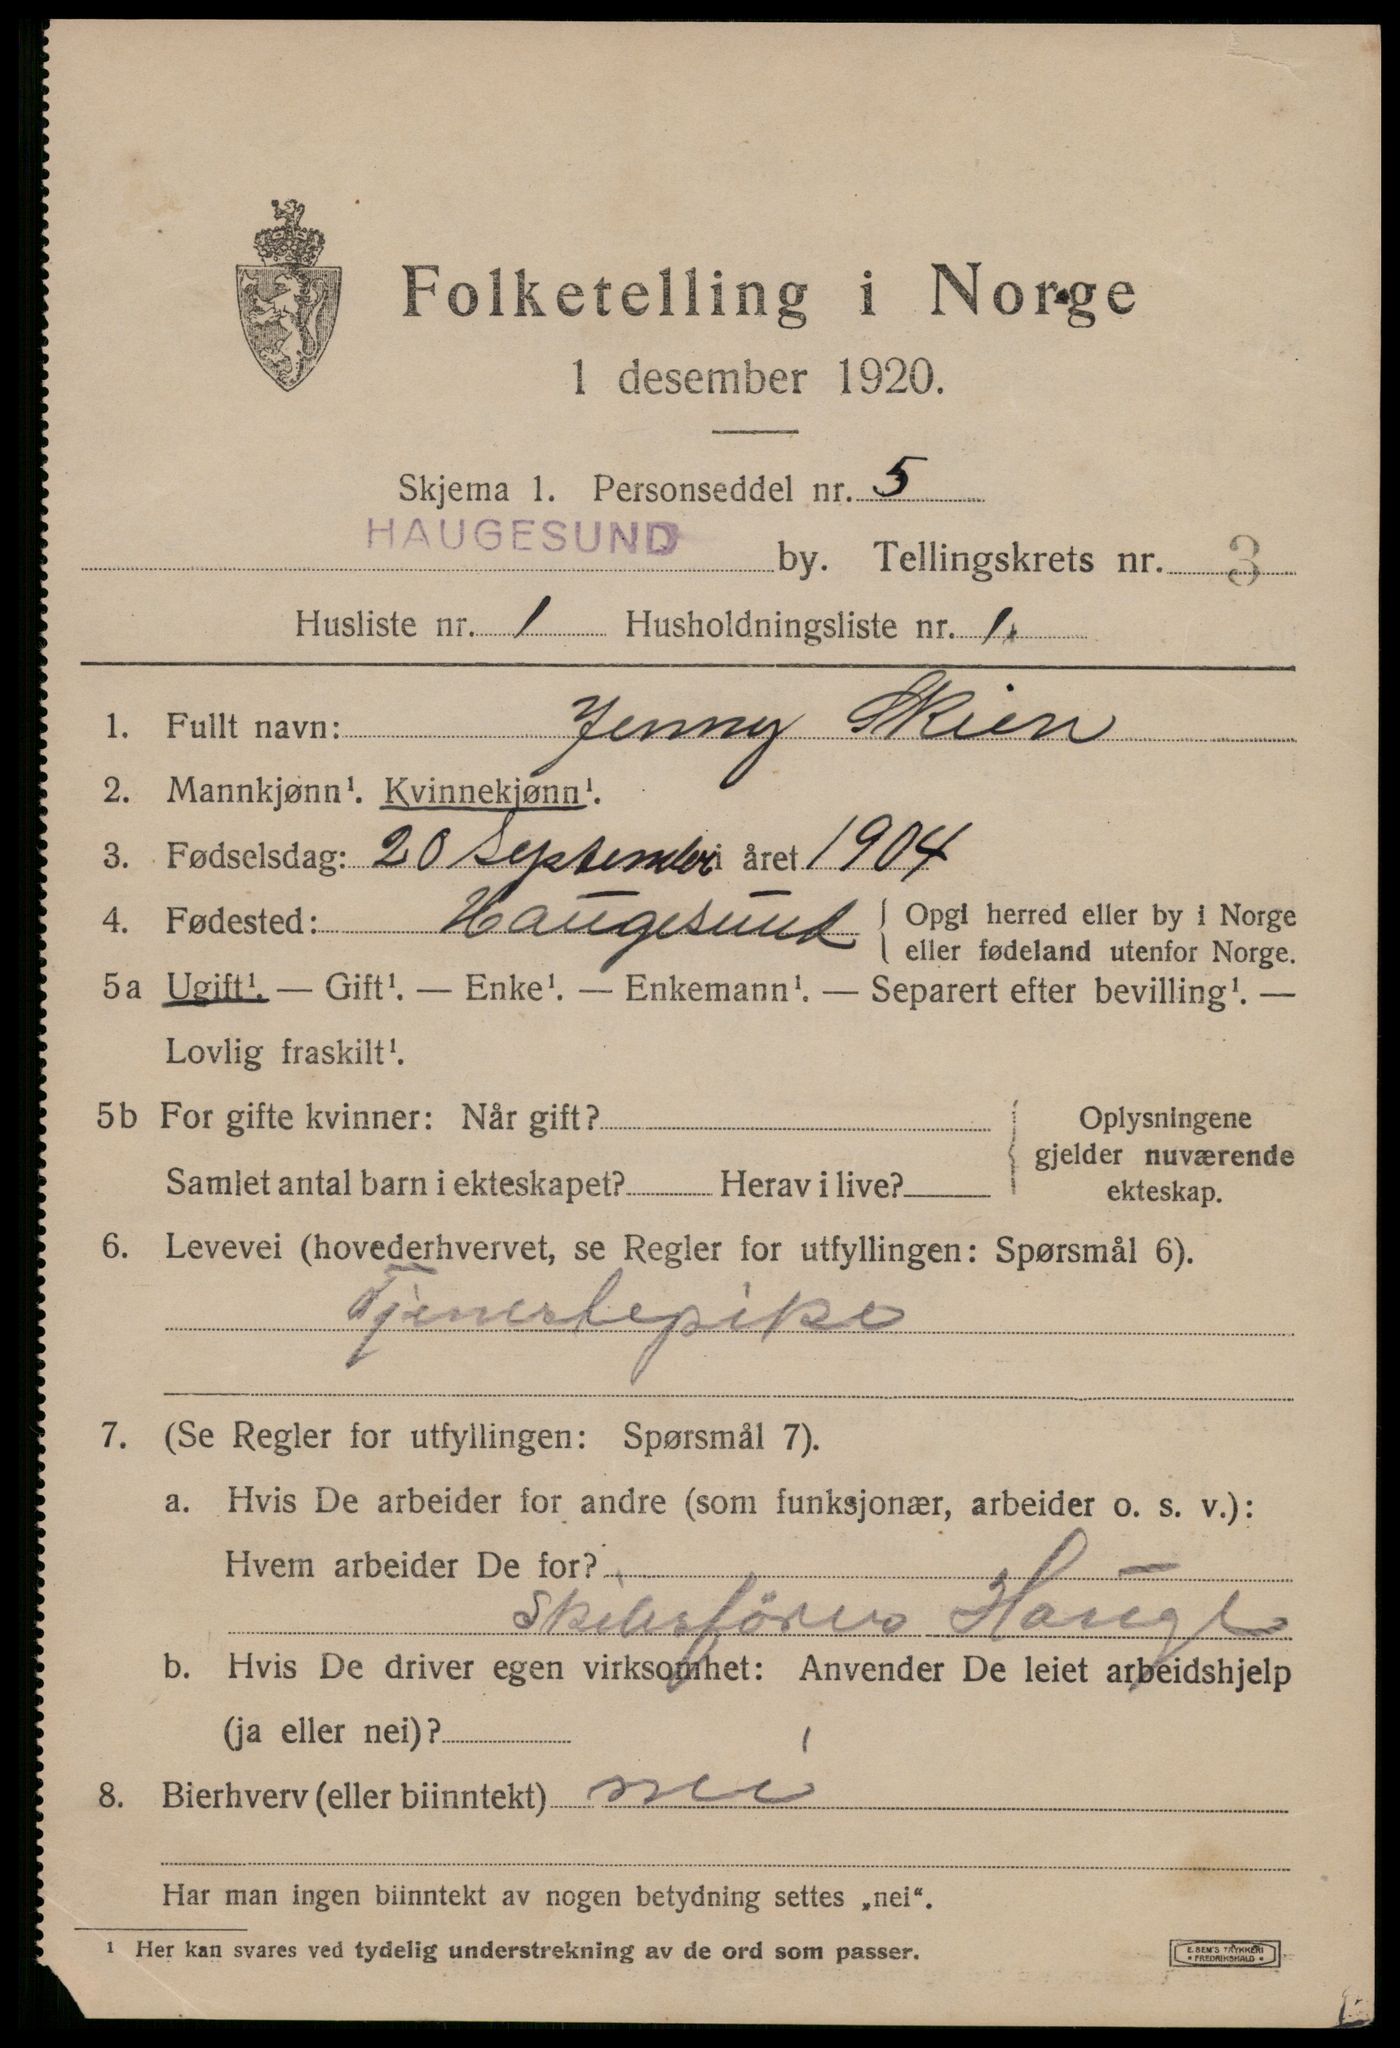 Folketelling i Norge
1 desember 1920.
Skjema 1. Personseddel nr. 5
HAUGESUND by. Tellingskrets nr. 3
Husliste nr. 1 Husholdningsliste nr. 1.
1. Fullt navn: Jenny Skien
2. Mannkjønn¹. Kvinnekjønn¹.
3. Fødselsdag: 20 September i året 1904
4. Fødested: Haugesund { Opgi herred eller by i Norge
eller fødeland utenfor Norge.
5a Ugift¹. — Gift¹. — Enke¹. — Enkemann¹. — Separert efter bevilling¹. —
Lovlig fraskilt¹.
5b For gifte kvinner: Når gift?
Samlet antal barn i ekteskapet? Herav i live?
Oplysningene
gjelder nuværende
ekteskap.
6. Levevei (hovederhvervet, se Regler for utfyllingen: Spørsmål 6).
Tjenestepike
7. (Se Regler for utfyllingen: Spørsmål 7).
a. Hvis De arbeider for andre (som funksjonær, arbeider o. s. v.):
Hvem arbeider De for?
Skibsförer Hauge
b. Hvis De driver egen virksomhet: Anvender De leiet arbeidshjelp
(ja eller nei)?
8. Bierhverv (eller biinntekt) nei
Har man ingen biinntekt av nogen betydning settes „nei“.
¹ Her kan svares ved tydelig understrekning av de ord som passer.
E. SEM'S TRYKKERI
FREDRIKSHALD